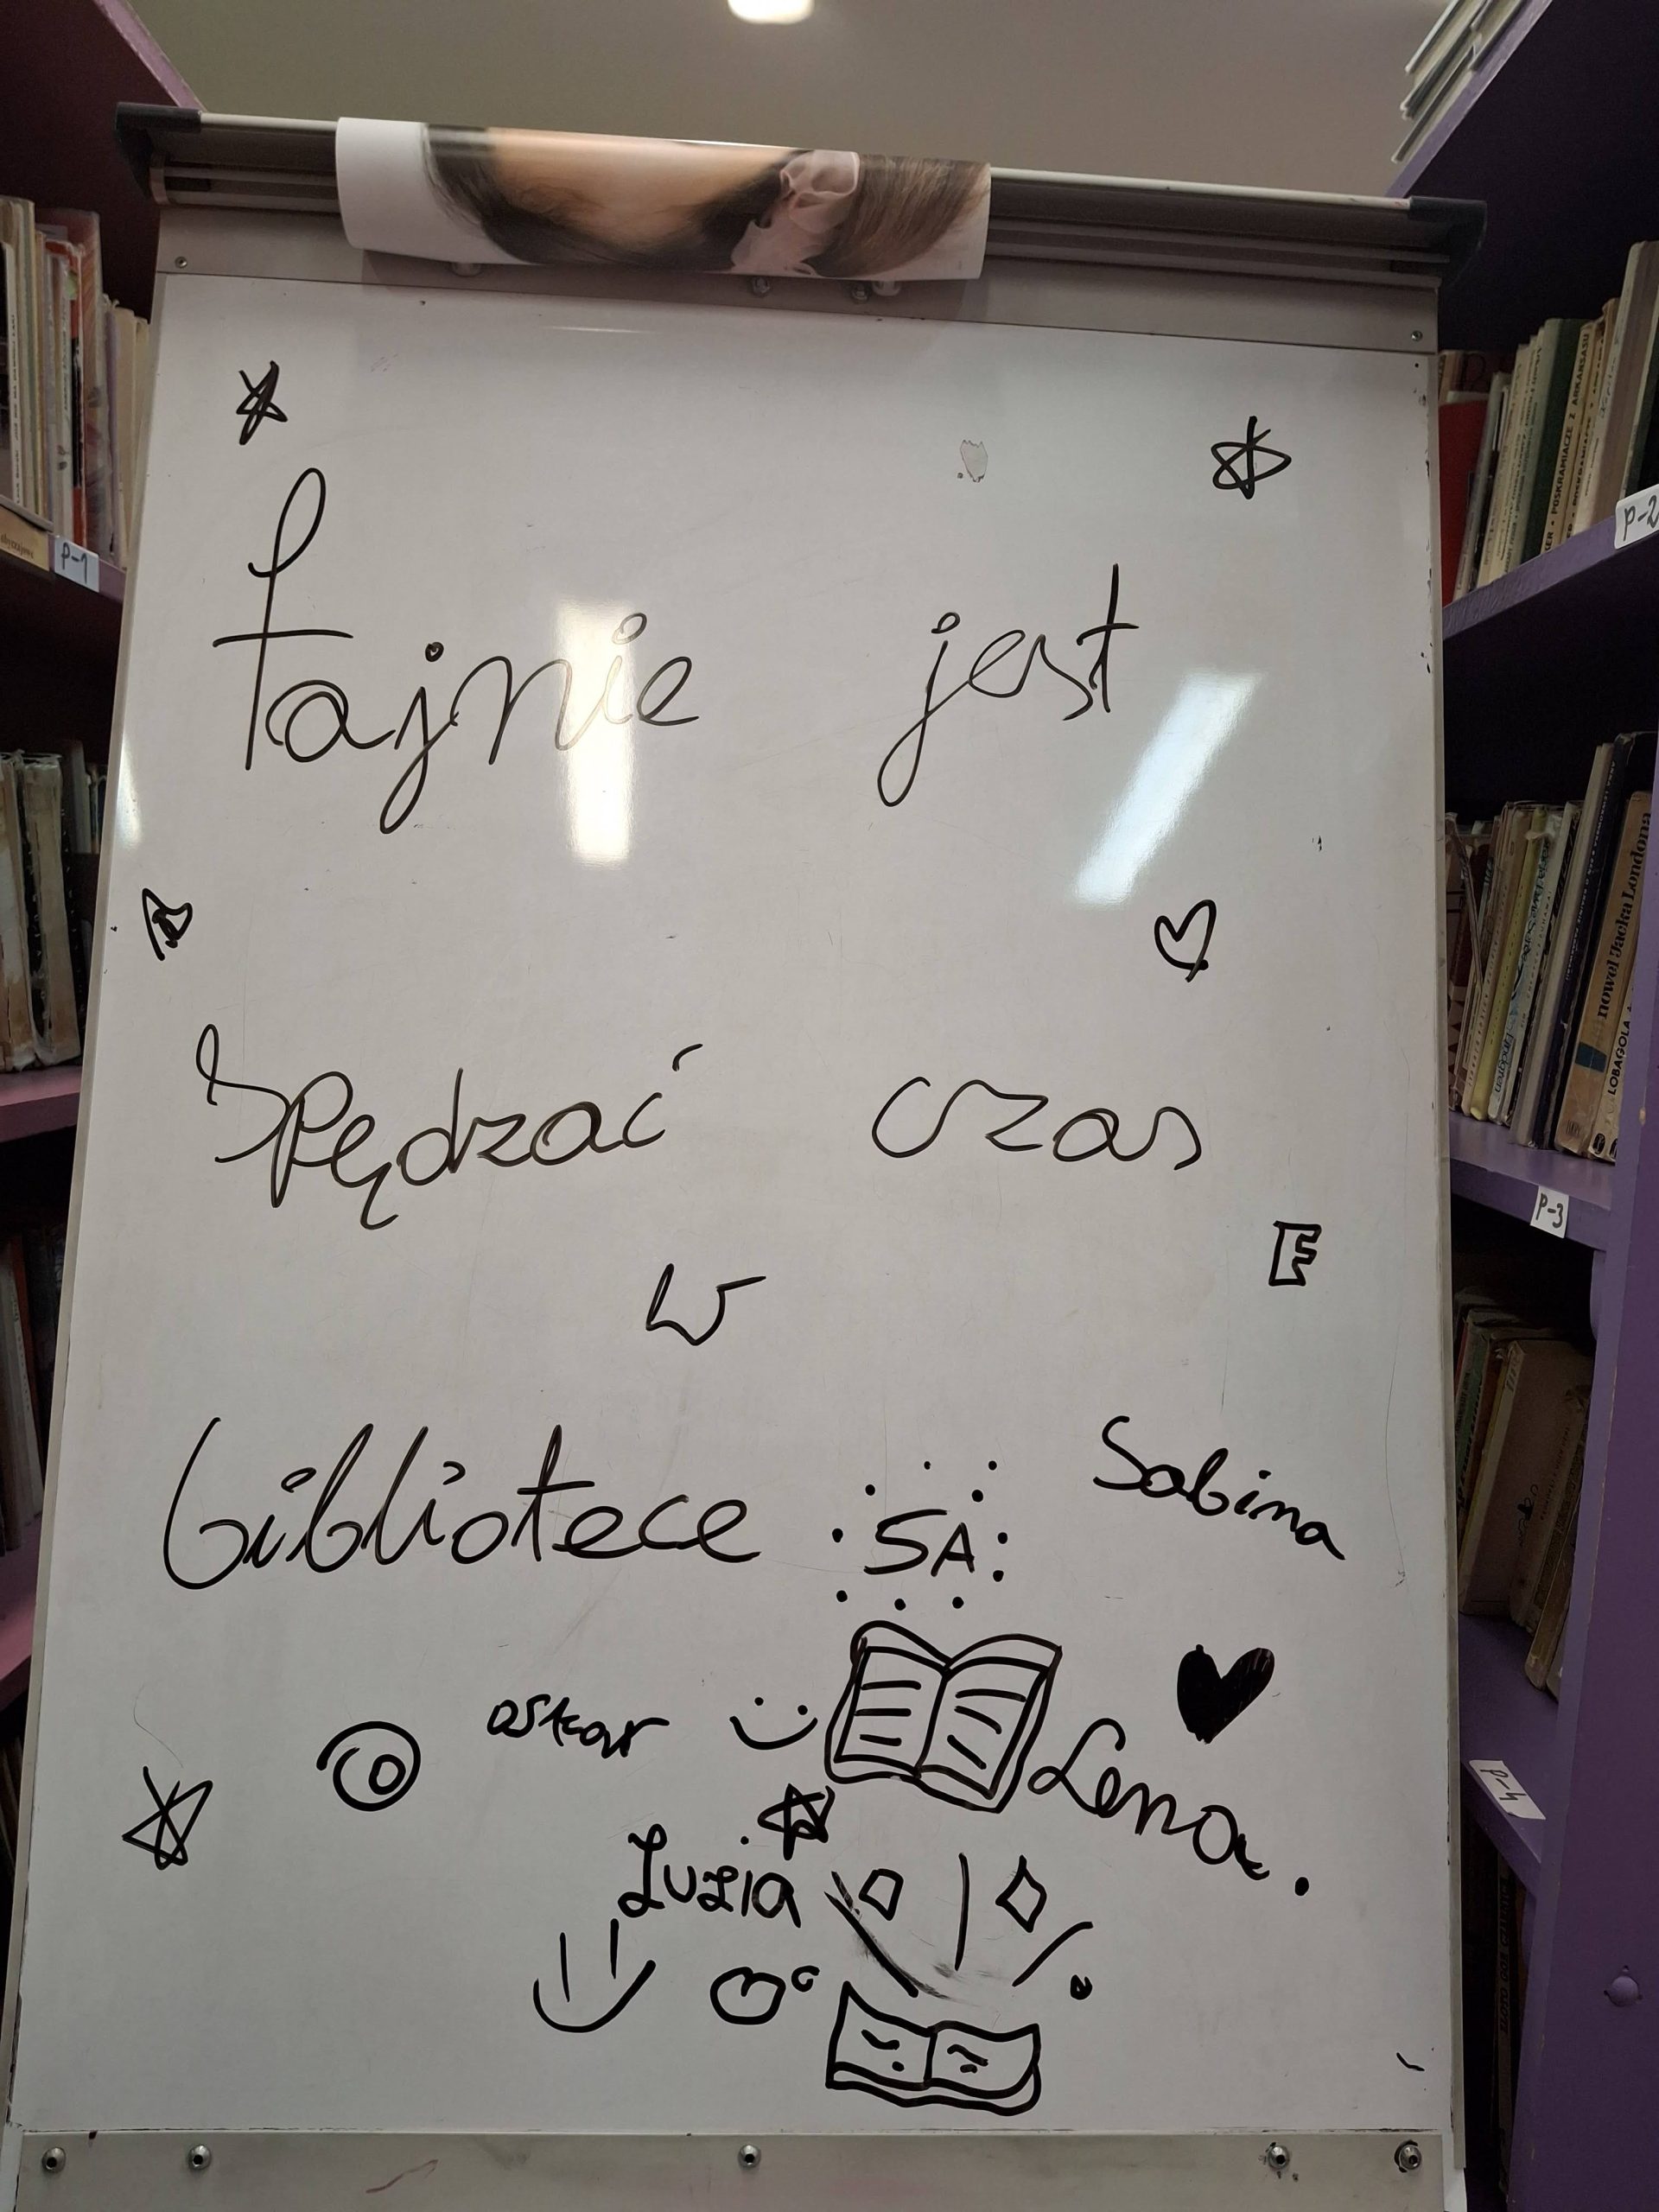 Fajnie jest
Spędzać czas
w
bibliotece
5A
Sabina
oskar
Lena.
Luzia
E
P-1
P-2
P-3
P-4
POSKRAMIACZE Z ARKANSASU
nowel Jacka Londona
LOBAGOLA